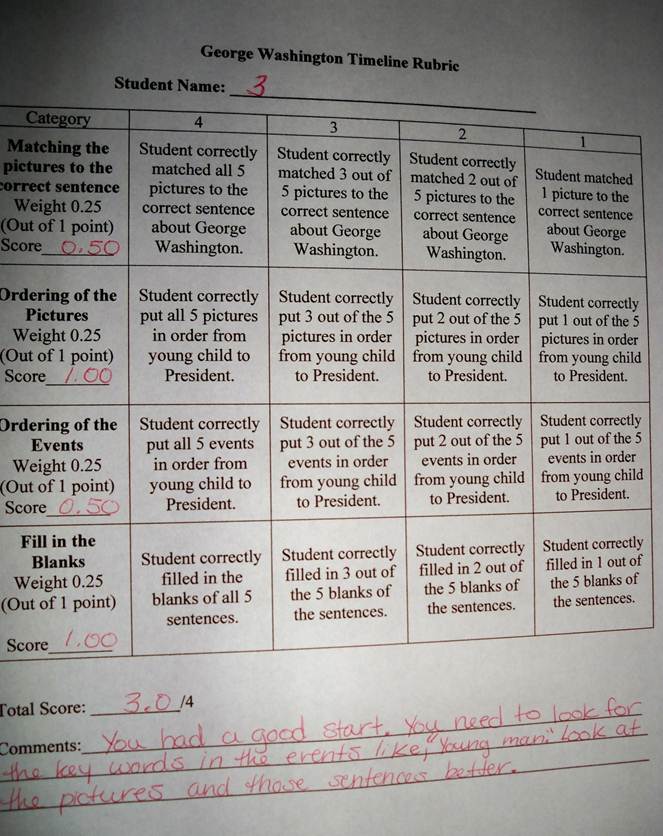 George Washington Timeline Rubric
Student Name: 3
Category 4 3 2 1
Matching the
pictures to the
correct sentence
Weight 0.25
(Out of 1 point)
Score 0.50
Student correctly
matched all 5
pictures to the
correct sentence
about George
Washington.
Student correctly
matched 3 out of
5 pictures to the
correct sentence
about George
Washington.
Student correctly
matched 2 out of
5 pictures to the
correct sentence
about George
Washington.
Student matched
1 picture to the
correct sentence
about George
Washington.
Ordering of the
Pictures
Weight 0.25
(Out of 1 point)
Score 1.00
Student correctly
put all 5 pictures
in order from
young child to
President.
Student correctly
put 3 out of the 5
pictures in order
from young child
to President.
Student correctly
put 2 out of the 5
pictures in order
from young child
to President.
Student correctly
put 1 out of the 5
pictures in order
from young child
to President.
Ordering of the
Events
Weight 0.25
(Out of 1 point)
Score 0.50
Student correctly
put all 5 events
in order from
young child to
President.
Student correctly
put 3 out of the 5
events in order
from young child
to President.
Student correctly
put 2 out of the 5
events in order
from young child
to President.
Student correctly
put 1 out of the 5
events in order
from young child
to President.
Fill in the
Blanks
Weight 0.25
(Out of 1 point)
Score 1.00
Student correctly
filled in the
blanks of all 5
sentences.
Student correctly
filled in 3 out of
the 5 blanks of
the sentences.
Student correctly
filled in 2 out of
the 5 blanks of
the sentences.
Student correctly
filled in 1 out of
the 5 blanks of
the sentences.
Total Score: 3.0 /4
Comments: You had a good start. You need to look for
the key words in the events like, "Young man." Look at
the pictures and those sentences better.